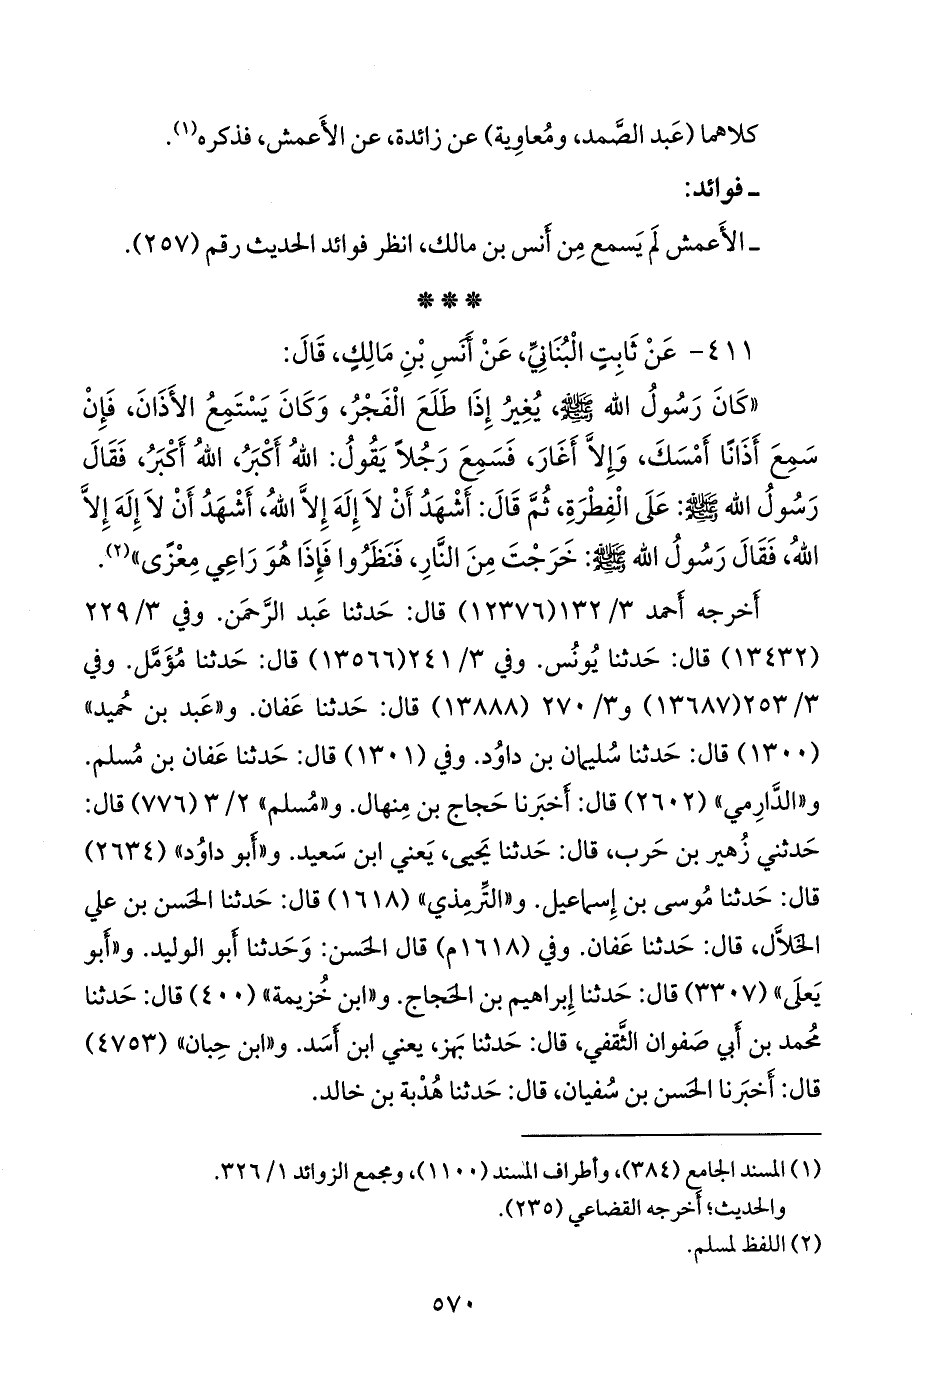 كلاهما (عَبد الصَّمد، ومُعاوِية) عن زائدة، عن الأَعمش، فذكره(١).
ـ فوائد:
ـ الأَعمش لَم يَسمع مِن أَنس بن مالك، انظر فوائد الحديث رقم (٢٥٧).
* * *
٤١١- عَنْ ثَابِتٍ الْبُنَانِيِّ، عَنْ أَنَسِ بْنِ مَالِكٍ، قَالَ:
«كَانَ رَسُولُ الله ﷺ، يُغِيرُ إِذَا طَلَعَ الْفَجْرُ، وَكَانَ يَسْتَمِعُ الأَذَانَ، فَإِنْ
سَمِعَ أَذَانًا أَمْسَكَ، وَإِلاَّ أَغَارَ، فَسَمِعَ رَجُلاً يَقُولُ: اللهُ أَكْبَرُ، اللهُ أَكْبَرُ، فَقَالَ
رَسُولُ الله ﷺ: عَلَى الْفِطْرَةِ، ثُمَّ قَالَ: أَشْهَدُ أَنْ لاَ إِلَهَ إِلاَّ اللهُ، أَشْهَدُ أَنْ لاَ إِلَهَ إِلاَّ
اللهُ، فَقَالَ رَسُولُ الله ﷺ: خَرَجْتَ مِنَ النَّارِ، فَنَظَرُوا فَإِذَا هُوَ رَاعِي مِعْزًى»(٢).
أَخرجه أَحمد ٣/ ١٣٢(١٢٣٧٦) قال: حَدثنا عَبد الرَّحمَن. وفي ٣/ ٢٢٩
(١٣٤٣٢) قال: حَدثنا يُونُس. وفي ٣/ ٢٤١(١٣٥٦٦) قال: حَدثنا مُؤَمَّل. وفي
٣/ ٢٥٣(١٣٦٨٧) و٣/ ٢٧٠ (١٣٨٨٨) قال: حَدثنا عَفان. و«عَبد بن حُميد»
(١٣٠٠) قال: حَدثنا سُليمان بن داوُد. وفي (١٣٠١) قال: حَدثنا عَفان بن مُسلم.
و«الدَّارِمي» (٢٦٠٢) قال: أَخبَرنا حَجاج بن مِنهال. و«مُسلم» ٢/ ٣ (٧٧٦) قال:
حَدثني زُهير بن حَرب، قال: حَدثنا يَحيى، يَعني ابن سَعيد. و«أَبو داوُد» (٢٦٣٤)
قال: حَدثنا مُوسى بن إِسماعيل. و«التِّرمِذي» (١٦١٨) قال: حَدثنا الحَسن بن علي
الخَلاَّل، قال: حَدثنا عَفان. وفي (١٦١٨م) قال الحَسن: وَحَدثنا أَبو الوليد. و«أَبو
يَعلَى» (٣٣٠٧) قال: حَدثنا إِبراهيم بن الحَجاج. و«ابن خُزيمة» (٤٠٠) قال: حَدثنا
مُحمد بن أَبي صَفوان الثَّقفي، قال: حَدثنا بَهز، يعني ابن أَسَد. و«ابن حِبان» (٤٧٥٣)
قال: أَخبَرنا الحَسن بن سُفيان، قال: حَدثنا هُدْبة بن خالد.
(١) المسند الجامع (٣٨٤)، وأطراف المسند (١١٠٠)، ومجمع الزوائد ١/ ٣٢٦.
والحديث؛ أَخرجه القضاعي (٢٣٥).
(٢) اللفظ لمسلم.
٥٧٠